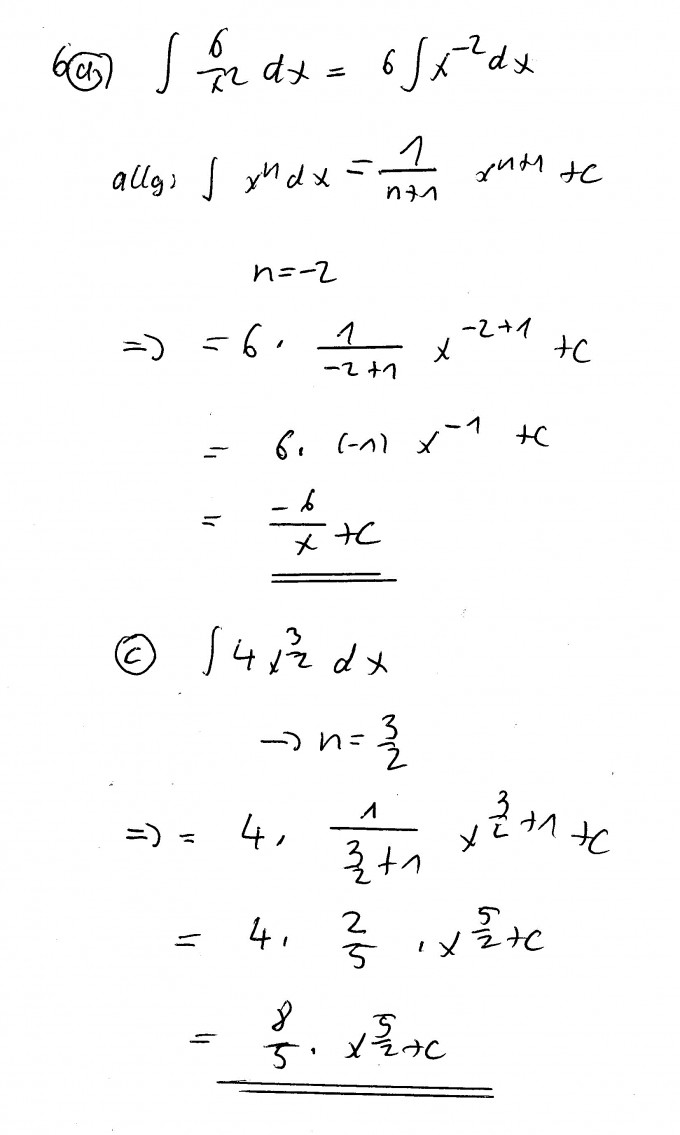 6a) ∫ 6/x² dx = 6 ∫ x⁻² dx
allg: ∫ xⁿ dx = 1/(n+1) xⁿ⁺¹ +C
n=-2
=> = 6 · 1/(-2+1) x⁻²⁺¹ +C
= 6 · (-1) x⁻¹ +C
= -6/x +C
c) ∫ 4 x^(3/2) dx
-> n = 3/2
=> = 4 · 1/(3/2+1) x^(3/2+1) +C
= 4 · 2/5 · x^(5/2) +C
= 8/5 · x^(5/2) +C